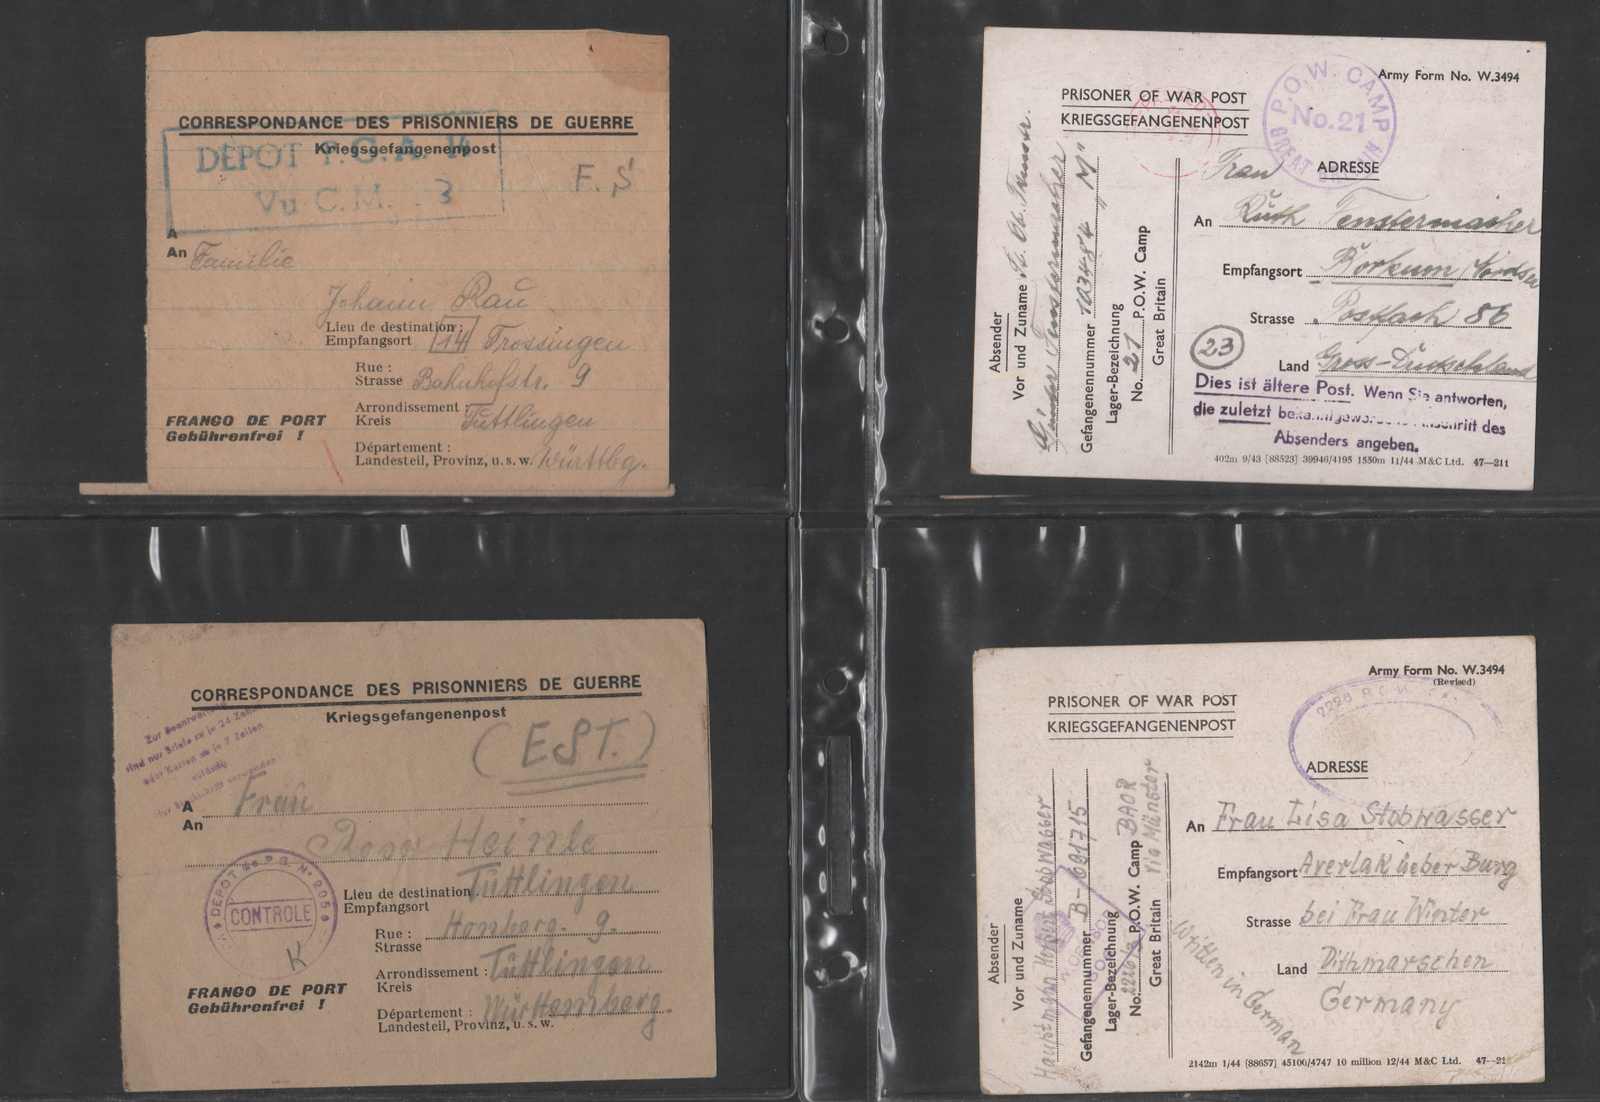 CORRESPONDANCE DES PRISONNIERS DE GUERRE
Kriegsgefangenenpost
DÉPOT P.G.A.
Vu C.M. 3
F. S
A
An Familie
Johann Rau
Lieu de destination :
Empfangsort 14 Trossingen
Rue :
Strasse Bahnhofstr. 9
Arrondissement :
Kreis Tuttlingen
Département :
Landesteil, Provinz, u. s. w. Württbg.
FRANCO DE PORT
Gebührenfrei !
Army Form No. W.3494
PRISONER OF WAR POST
KRIEGSGEFANGENENPOST
P.O.W. CAMP
No. 21
GREAT
ADRESSE
Frau
An Ruth Fenstermacher
Empfangsort Borkum Nordsee
Strasse Postfach 86
23
Land Gross-Deutschland
Dies ist ältere Post. Wenn Sie antworten,
die zuletzt bekanntgewordene Anschrift des
Absenders angeben.
402m 9/43 [88523] 39946/4195 1550m 11/44 M&C Ltd. 47—211
Absender
Vor und Zuname
Fenstermacher
Gefangenennummer "M"
Lager-Bezeichnung
No. 21 P.O.W. Camp
Great Britain
CORRESPONDANCE DES PRISONNIERS DE GUERRE
Kriegsgefangenenpost
(EST.)
Zur Beantwortung
sind nur Briefe zu je 24 Zeilen
oder Karten zu je 7 Zeilen
zulässig
A Frau
An
Rosa Heinle
Lieu de destination Tuttlingen
Empfangsort
Rue : Honberg. 9.
Strasse
Arrondissement : Tuttlingen
Kreis
Département : Württemberg.
Landesteil, Provinz, u. s. w.
DEPOT de P.G. No 205
CONTROLE
K
FRANCO DE PORT
Gebührenfrei !
Army Form No. W.3494
(Revised)
PRISONER OF WAR POST
KRIEGSGEFANGENENPOST
2226 P.O.W.
ADRESSE
An Frau Lisa Stobwasser
Empfangsort Averlak ueber Burg
Strasse bei Frau Winter
Land Dithmarschen
Germany
2142m 1/44 [88657] 45100/4747 10 million 12/44 M&C Ltd. 47—21
Absender
Vor und Zuname
Hauptmann Stobwasser
Gefangenennummer B-691715
Lager-Bezeichnung
No. 2226 P.O.W. Camp BAOR
Great Britain via Münster
Written in German